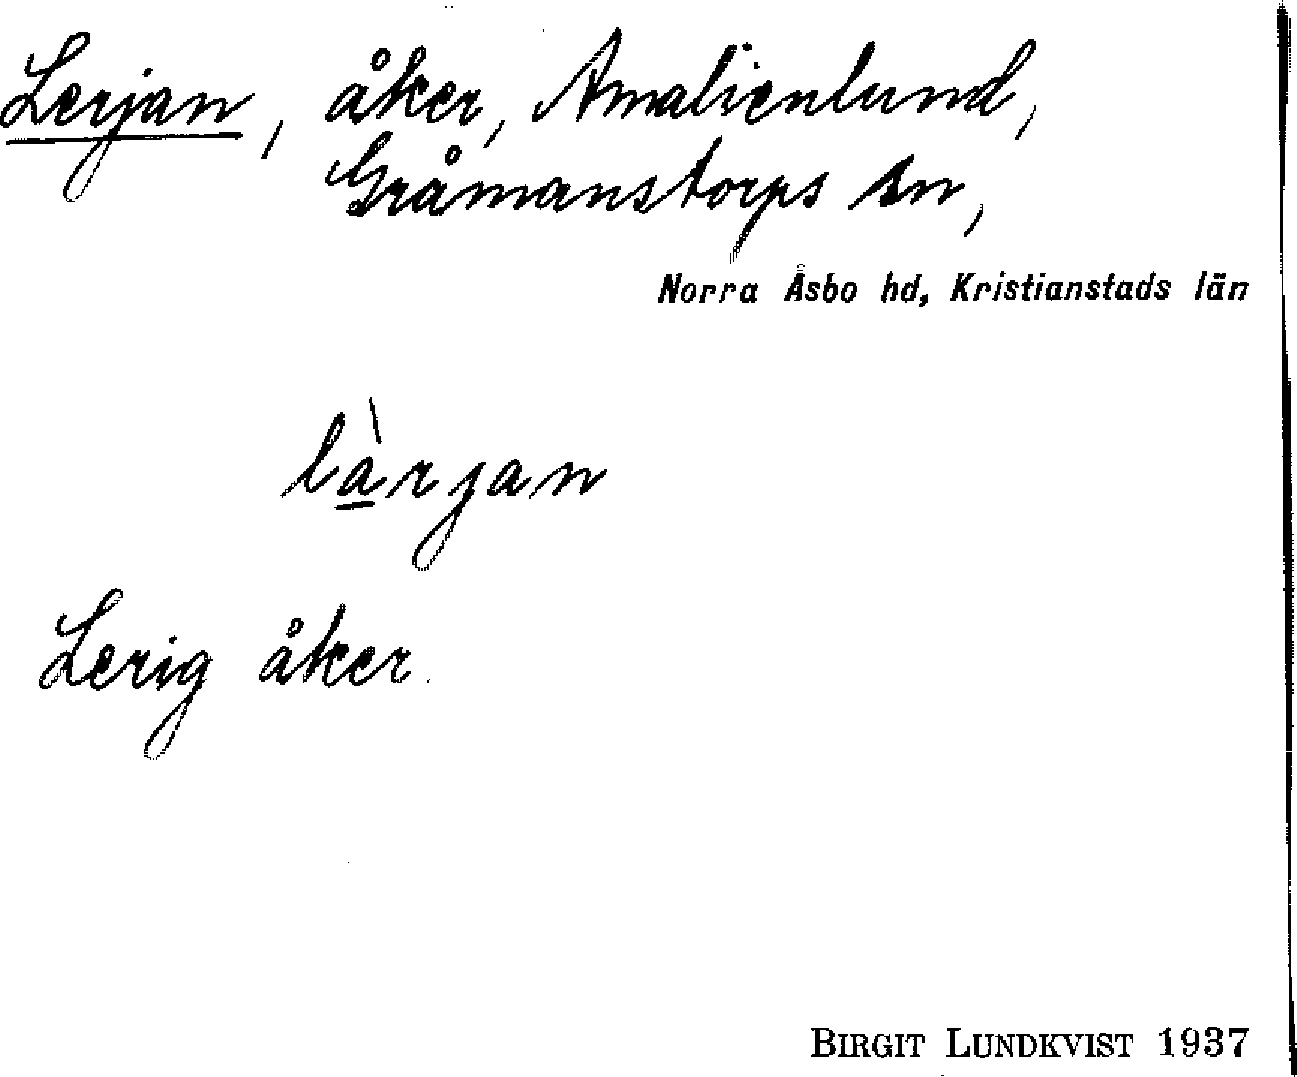 Lerjan, åker, Amalienlund,
Gråmanstorps sn,
Norra Åsbo hd, Kristianstads län
là̲rjan
Lerig åker.
BIRGIT LUNDKVIST 1937